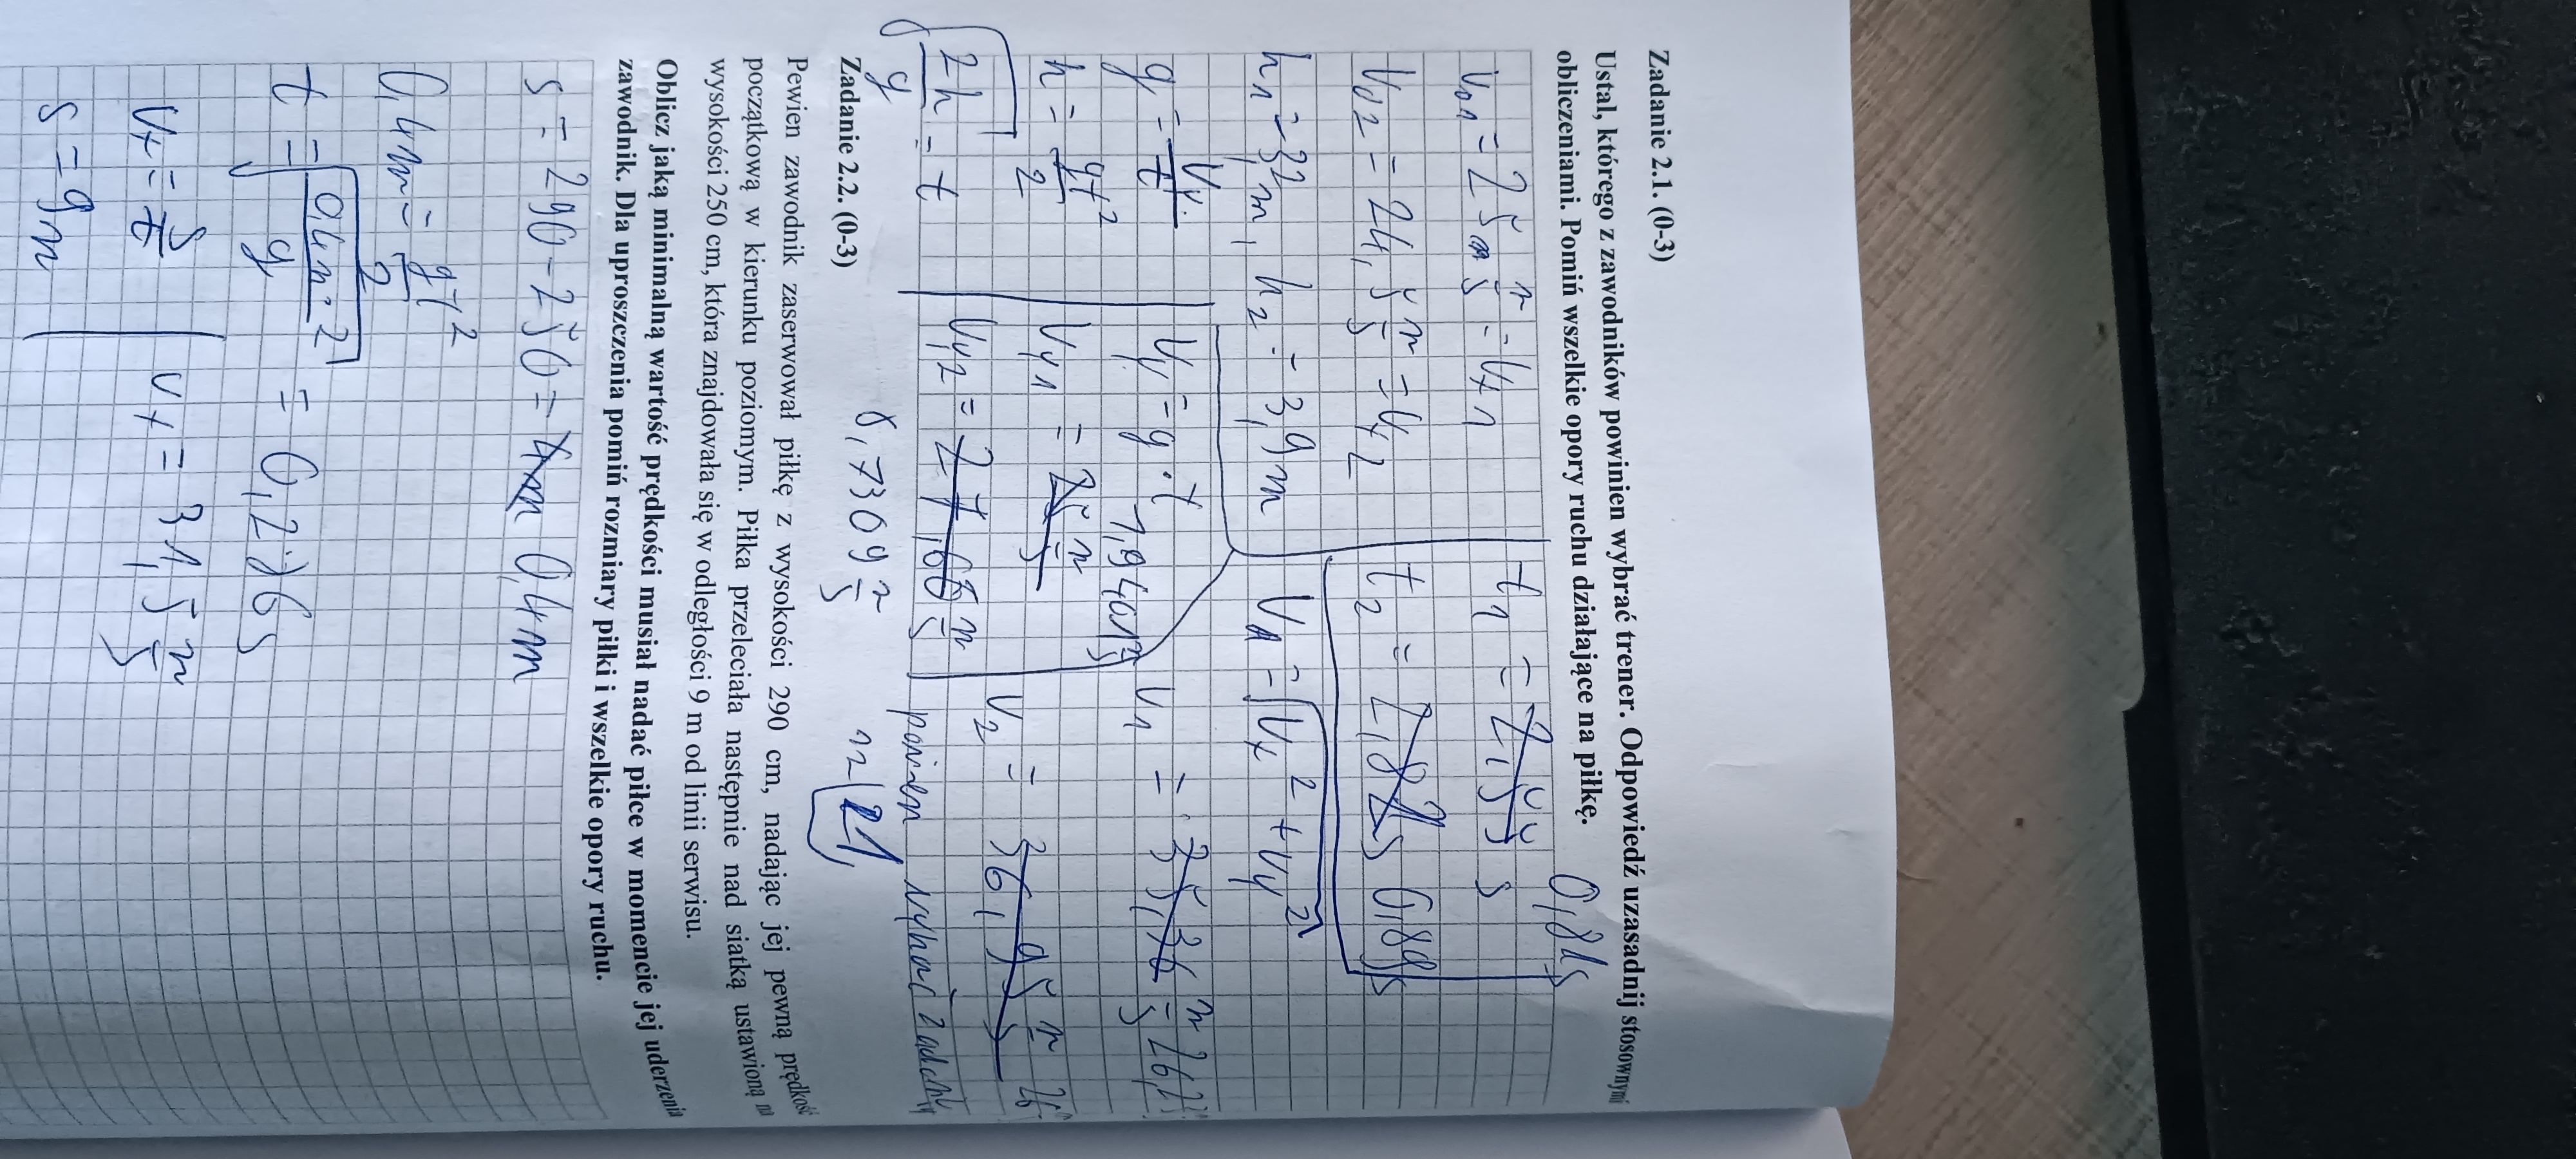 Zadanie 2.1. (0-3)
Ustal, którego z zawodników powinien wybrać trener. Odpowiedź uzasadnij stosownymi
obliczeniami. Pomiń wszelkie opory ruchu działające na piłkę.
V01 = 25 m/s = Vx1
t1 = 2,55 s 0,81s
V02 = 24,5 m/s = Vx2
t2 = 2,82s 0,89s
h1 = 3,2m, h2 = 3,9m
V = √Vx² + Vy²
g = Vy/t
Vy = g·t
V1 = 35,36 m/s
h = gt²/2
Vy1 = 25 m/s
V2 = 36,95 m/s
√2h/g = t
Vy2 = 27,68 m/s
Zadanie 2.2. (0-3)
Pewien zawodnik zaserwował piłkę z wysokości 290 cm, nadając jej pewną prędkość
początkową w kierunku poziomym. Piłka przeleciała następnie nad siatką ustawioną na
wysokości 250 cm, która znajdowała się w odległości 9 m od linii serwisu.
Oblicz jaką minimalną wartość prędkości musiał nadać piłce w momencie jej uderzenia
zawodnik. Dla uproszczenia pomiń rozmiary piłki i wszelkie opory ruchu.
s = 290 - 250 = 0,4m
0,4m = gt²/2
t = √0,4m·2/g = 0,286s
Vx = s/t
Vx = 31,5 m/s
s = 9m